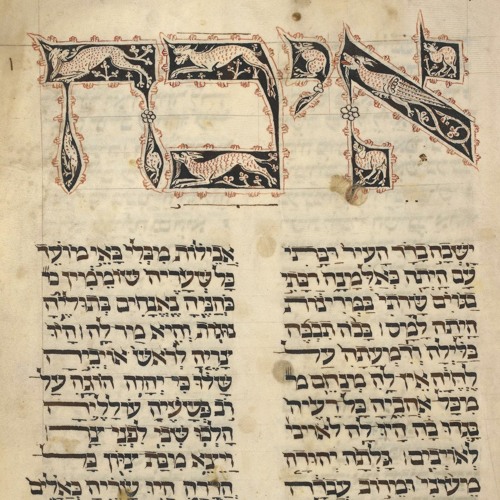 איכה
ישבה בדד העיר רבתי
עם היתה כאלמנה רבתי
בגוים שרתי במדינות
היתה למס׃ בכה תבכה
בלילה ודמעתה על
לחיה אין לה מנחם מ
מכל אהביה כל רעיה
בגדו בה היו לה לאיבי
לאיבים׃ גלתה יהודה
מעוני ומרוב עבדה
אבילות מבלי באי מועד
כל שעריה שוממין כ
כהניה נאנחים בתולתיה
נוגות והיא מר לה׃ היו
צריה לראש אויביה
שלו כי יהוה הוגה על
רוב פשעיה עולליה
הלכו שבי לפני צר
ויצא מבת ציון כל
הדרה היו שריה כאילים